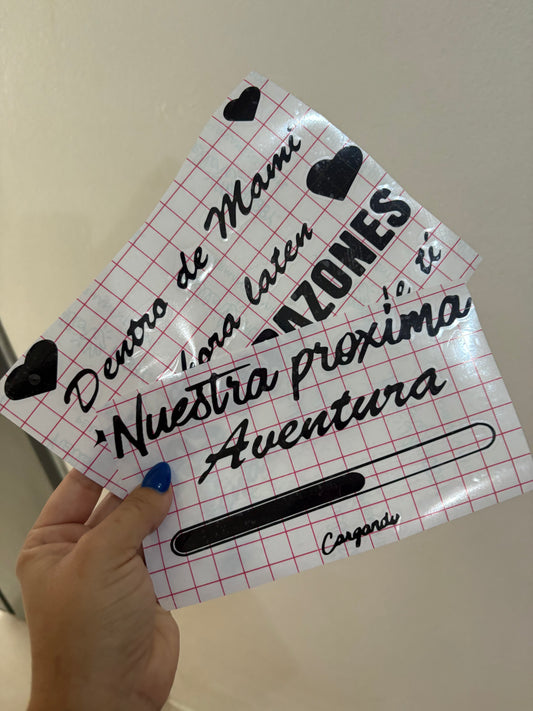 Dentro de Mami
laten
de ti
Nuestra proxima
Aventura
Cargando